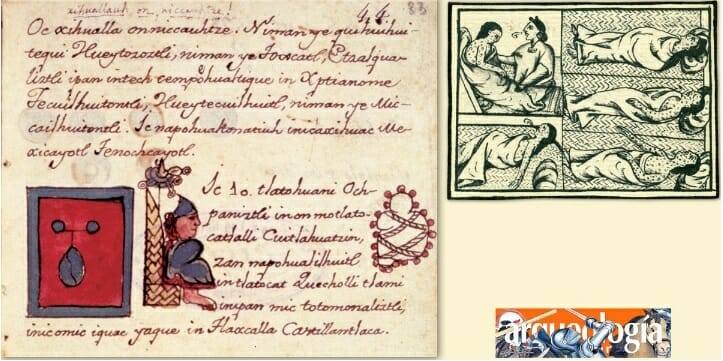 xihuallauh on niccauhtze!
44. 83
Oc xihualla onniccauhtze. Niman ye quihuihui-
tequi Hueytozoztli, niman ye Toxcatl, Etzalqua-
liztli ipan intech tempohualtique in Xptianome
Tecuilhuitontli, Hueytecuilhuitl, niman ye Mic-
cailhuitontli. Ic napohualtonatiuh inicaxihuac Me-
xicayotl Tenochcayotl.
Ic 10. tlatohuani Och-
paniztli in on motlato-
catlalli Cuitlahuatzin,
zan napohualilhuitl
in tlatocat Quecholli tlami
inipan mic totomonaliztli,
inicomic iquac yaque in Tlaxcalla Caxtillantlaca.
arqueología